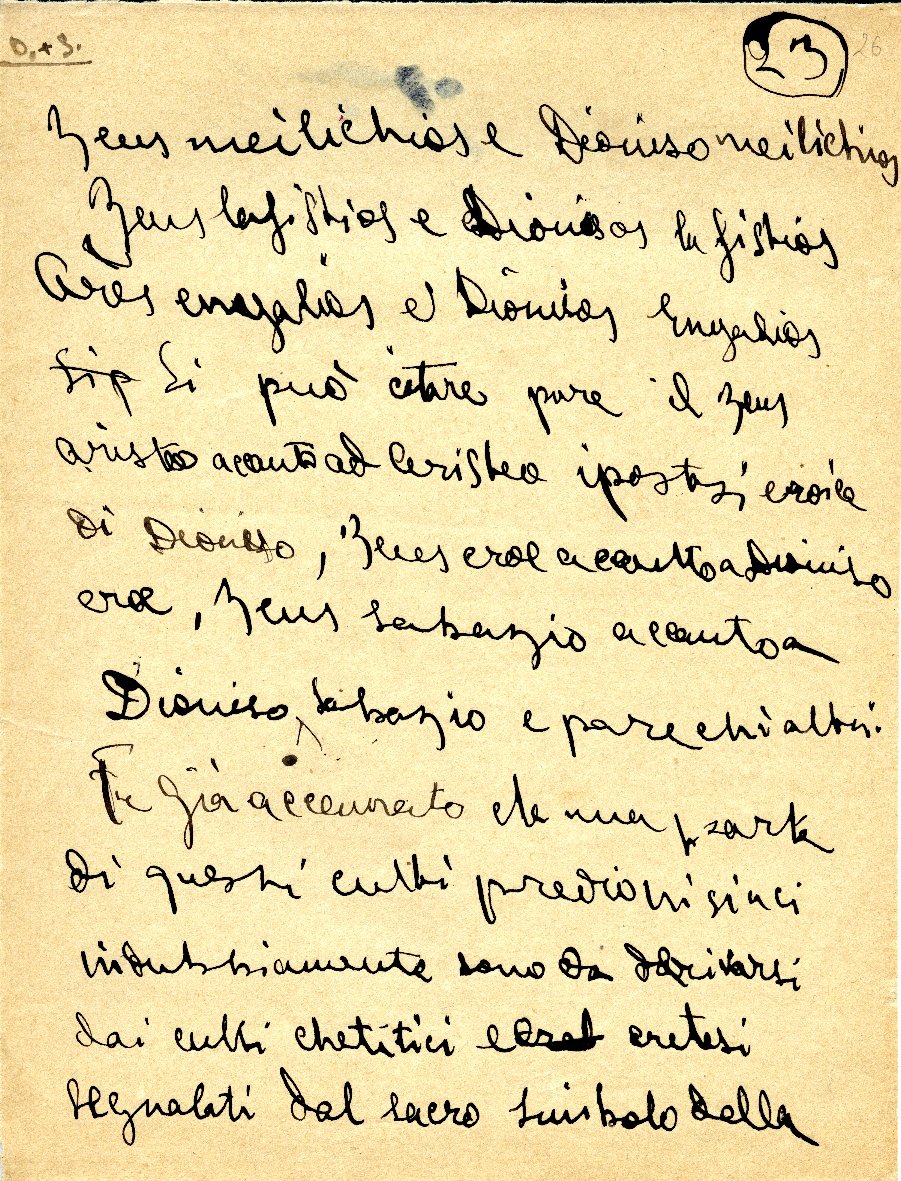 D.+S.
23
26
Zeus meilichios e Dioniso meilichios
Zeus lafistios e Dionisos lafistios
Ares enyalios e Dionisos Enyalios
Si può citare pure il Zeus
aristeo accanto ad Aristeo ipostasi eroica
di Dioniso, Zeus eroe accanto a Dioniso
eroe, Zeus sabazio accanto a
Dioniso Sabazio e parecchi altri.
Fu già accennato che una parte
di questi culti predionisiaci
indubbiamente sono da derivarsi
dai culti chetitici e cretesi
segnalati dal sacro simbolo della